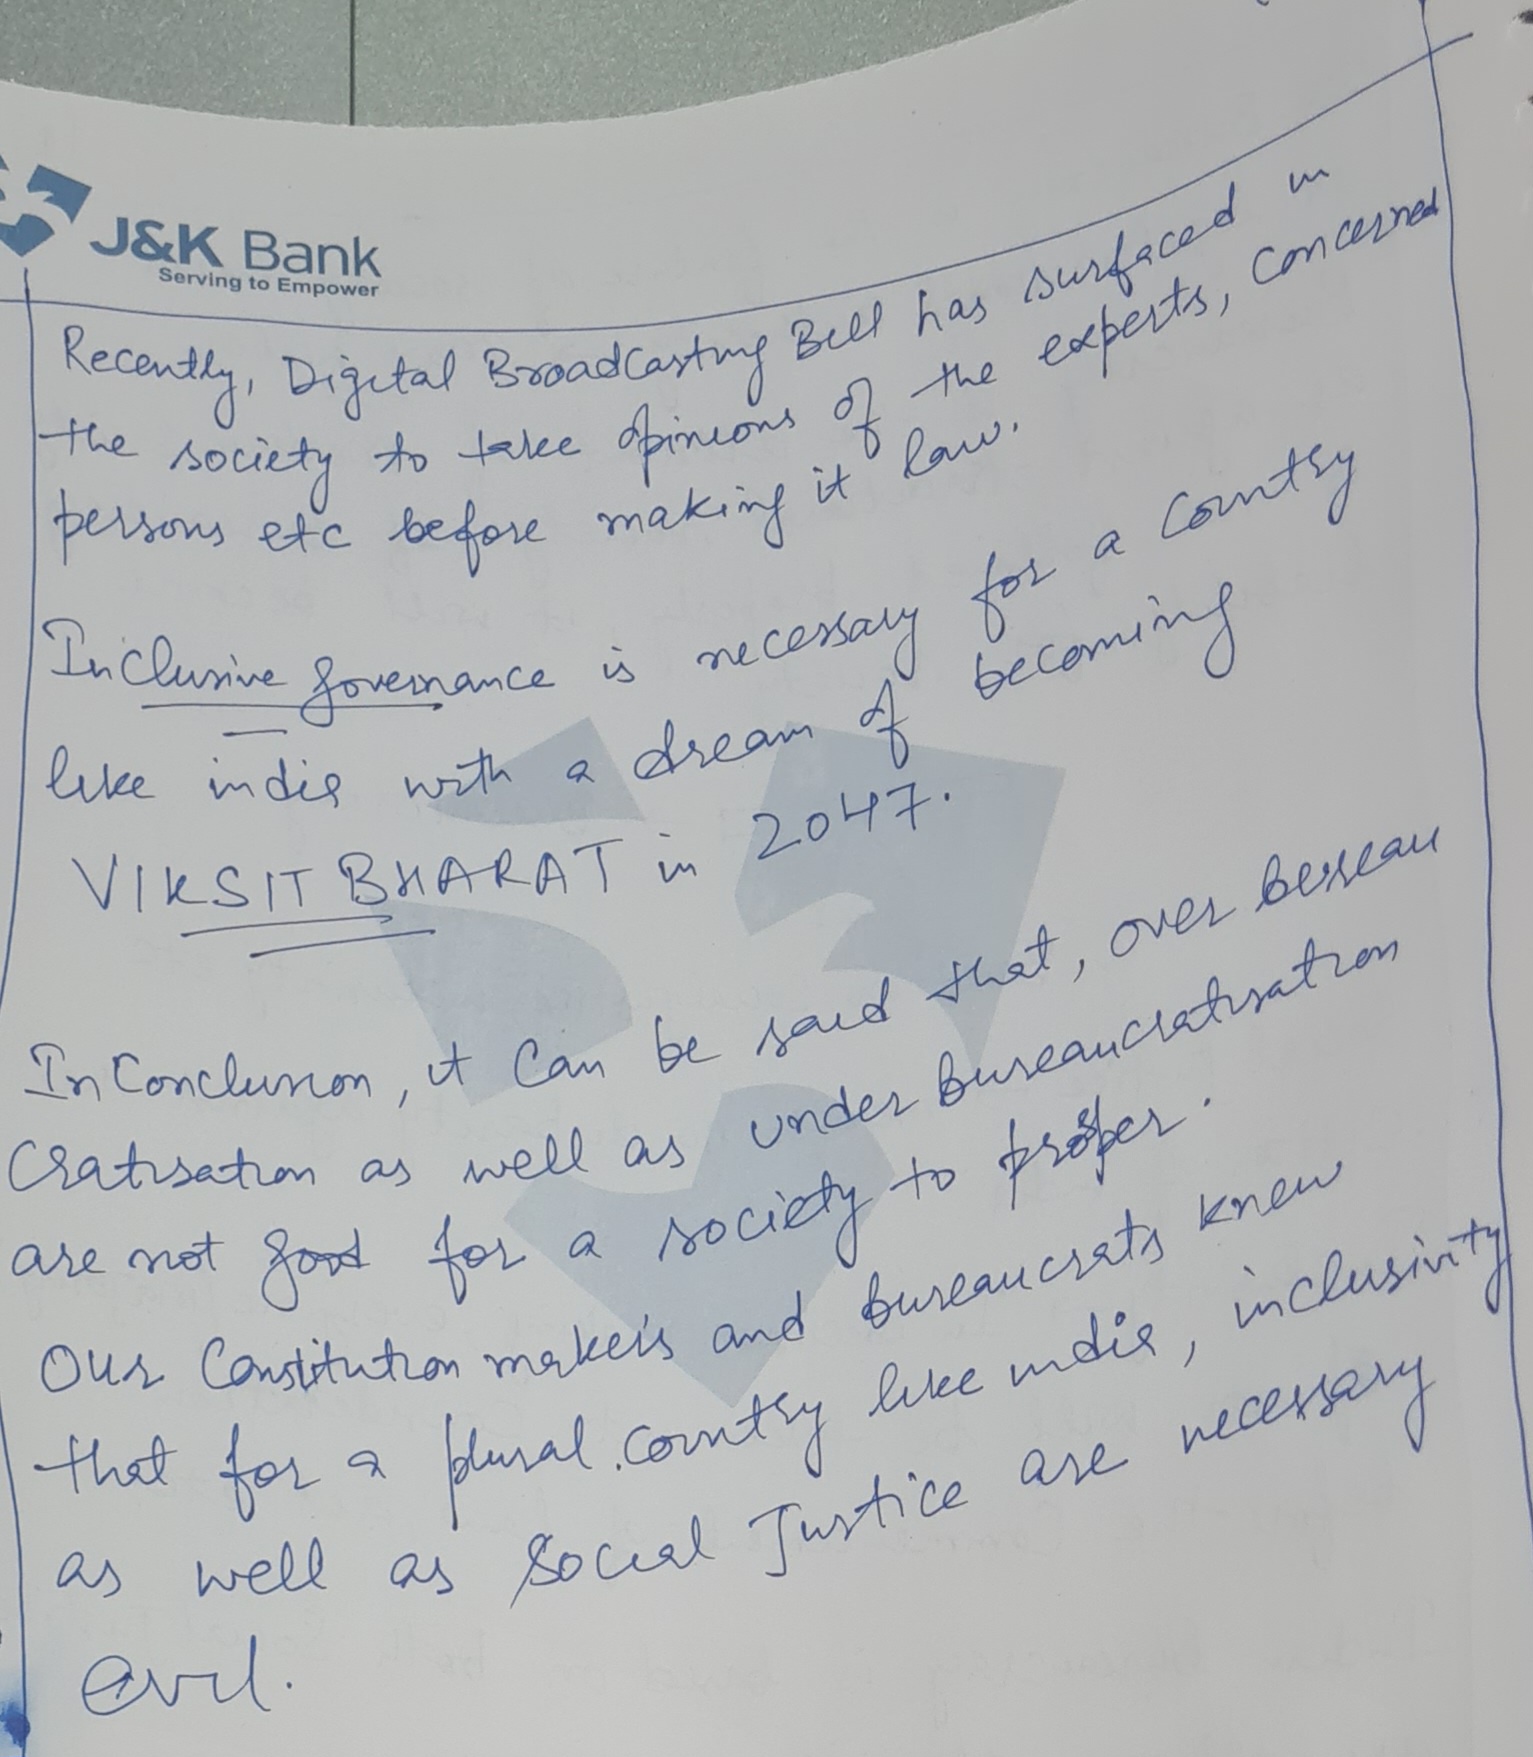 J&K Bank
Serving to Empower
Recently, Digital Broadcasting Bill has surfaced in
the society to take opinions of the experts, concerned
persons etc before making it law.
Inclusive governance is necessary for a country
like india with a dream of becoming
VIKSIT BHARAT in 2047.
In Conclusion, it can be said that, over bureau
cratisation as well as under bureaucratisation
are not good for a society to prosper.
Our Constitution makers and bureaucrats knew
that for a plural country like india, inclusivity
as well as Social Justice are necessary
evil.